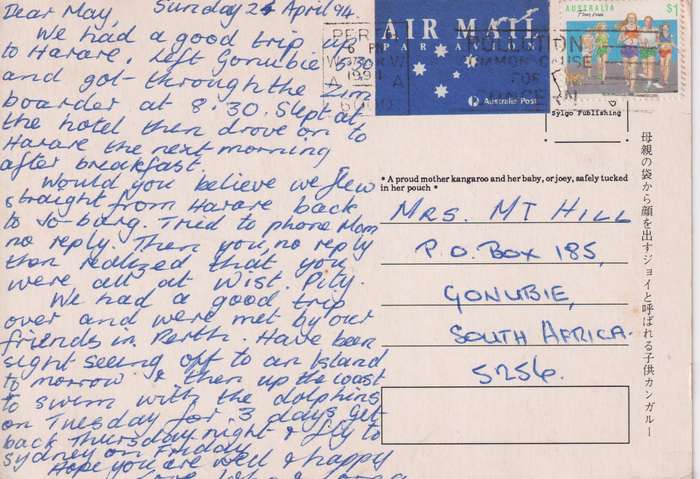 Dear May, Sunday 24 April 94.
We had a good trip up
to Harare. Left Gonubie 5.30
and got through the Zim
boarder at 8.30. Slept at
the hotel then drove on to
Harare the next morning
after breakfast.
Would you believe we flew
straight from Harare back
to Jo-burg. Tried to phone Mom
no reply. Then you, no reply
then realized that you
were all at Wist. Pity.
We had a good trip
over and were met by our
friends in Perth. Have been
sight seeing off to an Island
to morrow & then up the coast
to swim with the dolphins
on Tuesday for 3 days get
back Thursday night & fly to
Sydney on Friday
Hope you are well & happy
AIR MAIL
PAR AVION
Australia Post
AUSTRALIA
$1
PERTH
6 PM
1994
W A
6000
POLLUTION
COMMON CAUSE
FOR
CONCERN
Sylgo Publishing
* A proud mother kangaroo and her baby, or joey, safely tucked
in her pouch *
MRS. MT HILL
P.O. BOX 185,
GONUBIE,
SOUTH AFRICA.
5256.
母親の袋から顔を出すジョイと呼ばれる子供カンガルー